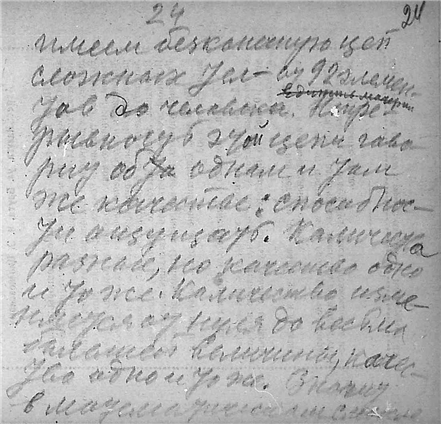 24 24
имеем безконечную цеп
сложных тел — от 92 элемен-
тов до человека. Непре-
рывность этой цепи гово-
рит об одном и том
же качестве: способнос-
ти ощущать. Количества
разные, но качество одно
и то же. Количество изме-
няется от нуля до весьма
большой величины, качес-
тво одно и то же. Значит
в математическом смысле